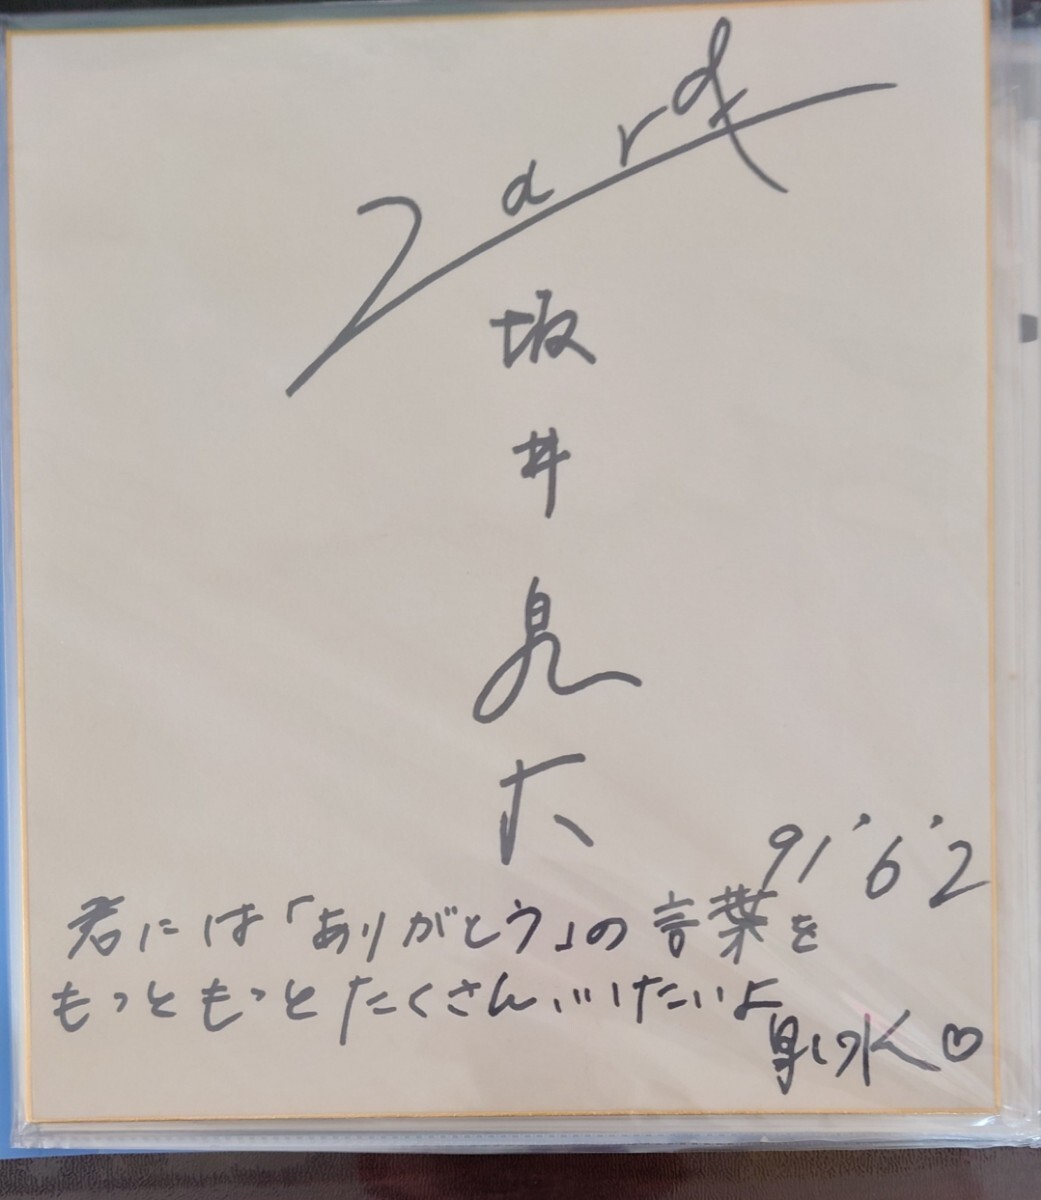 Zard
坂井泉水
91'6'2
君には「ありがとう」の言葉を
もっともっとたくさんいいたいよ
泉水♡